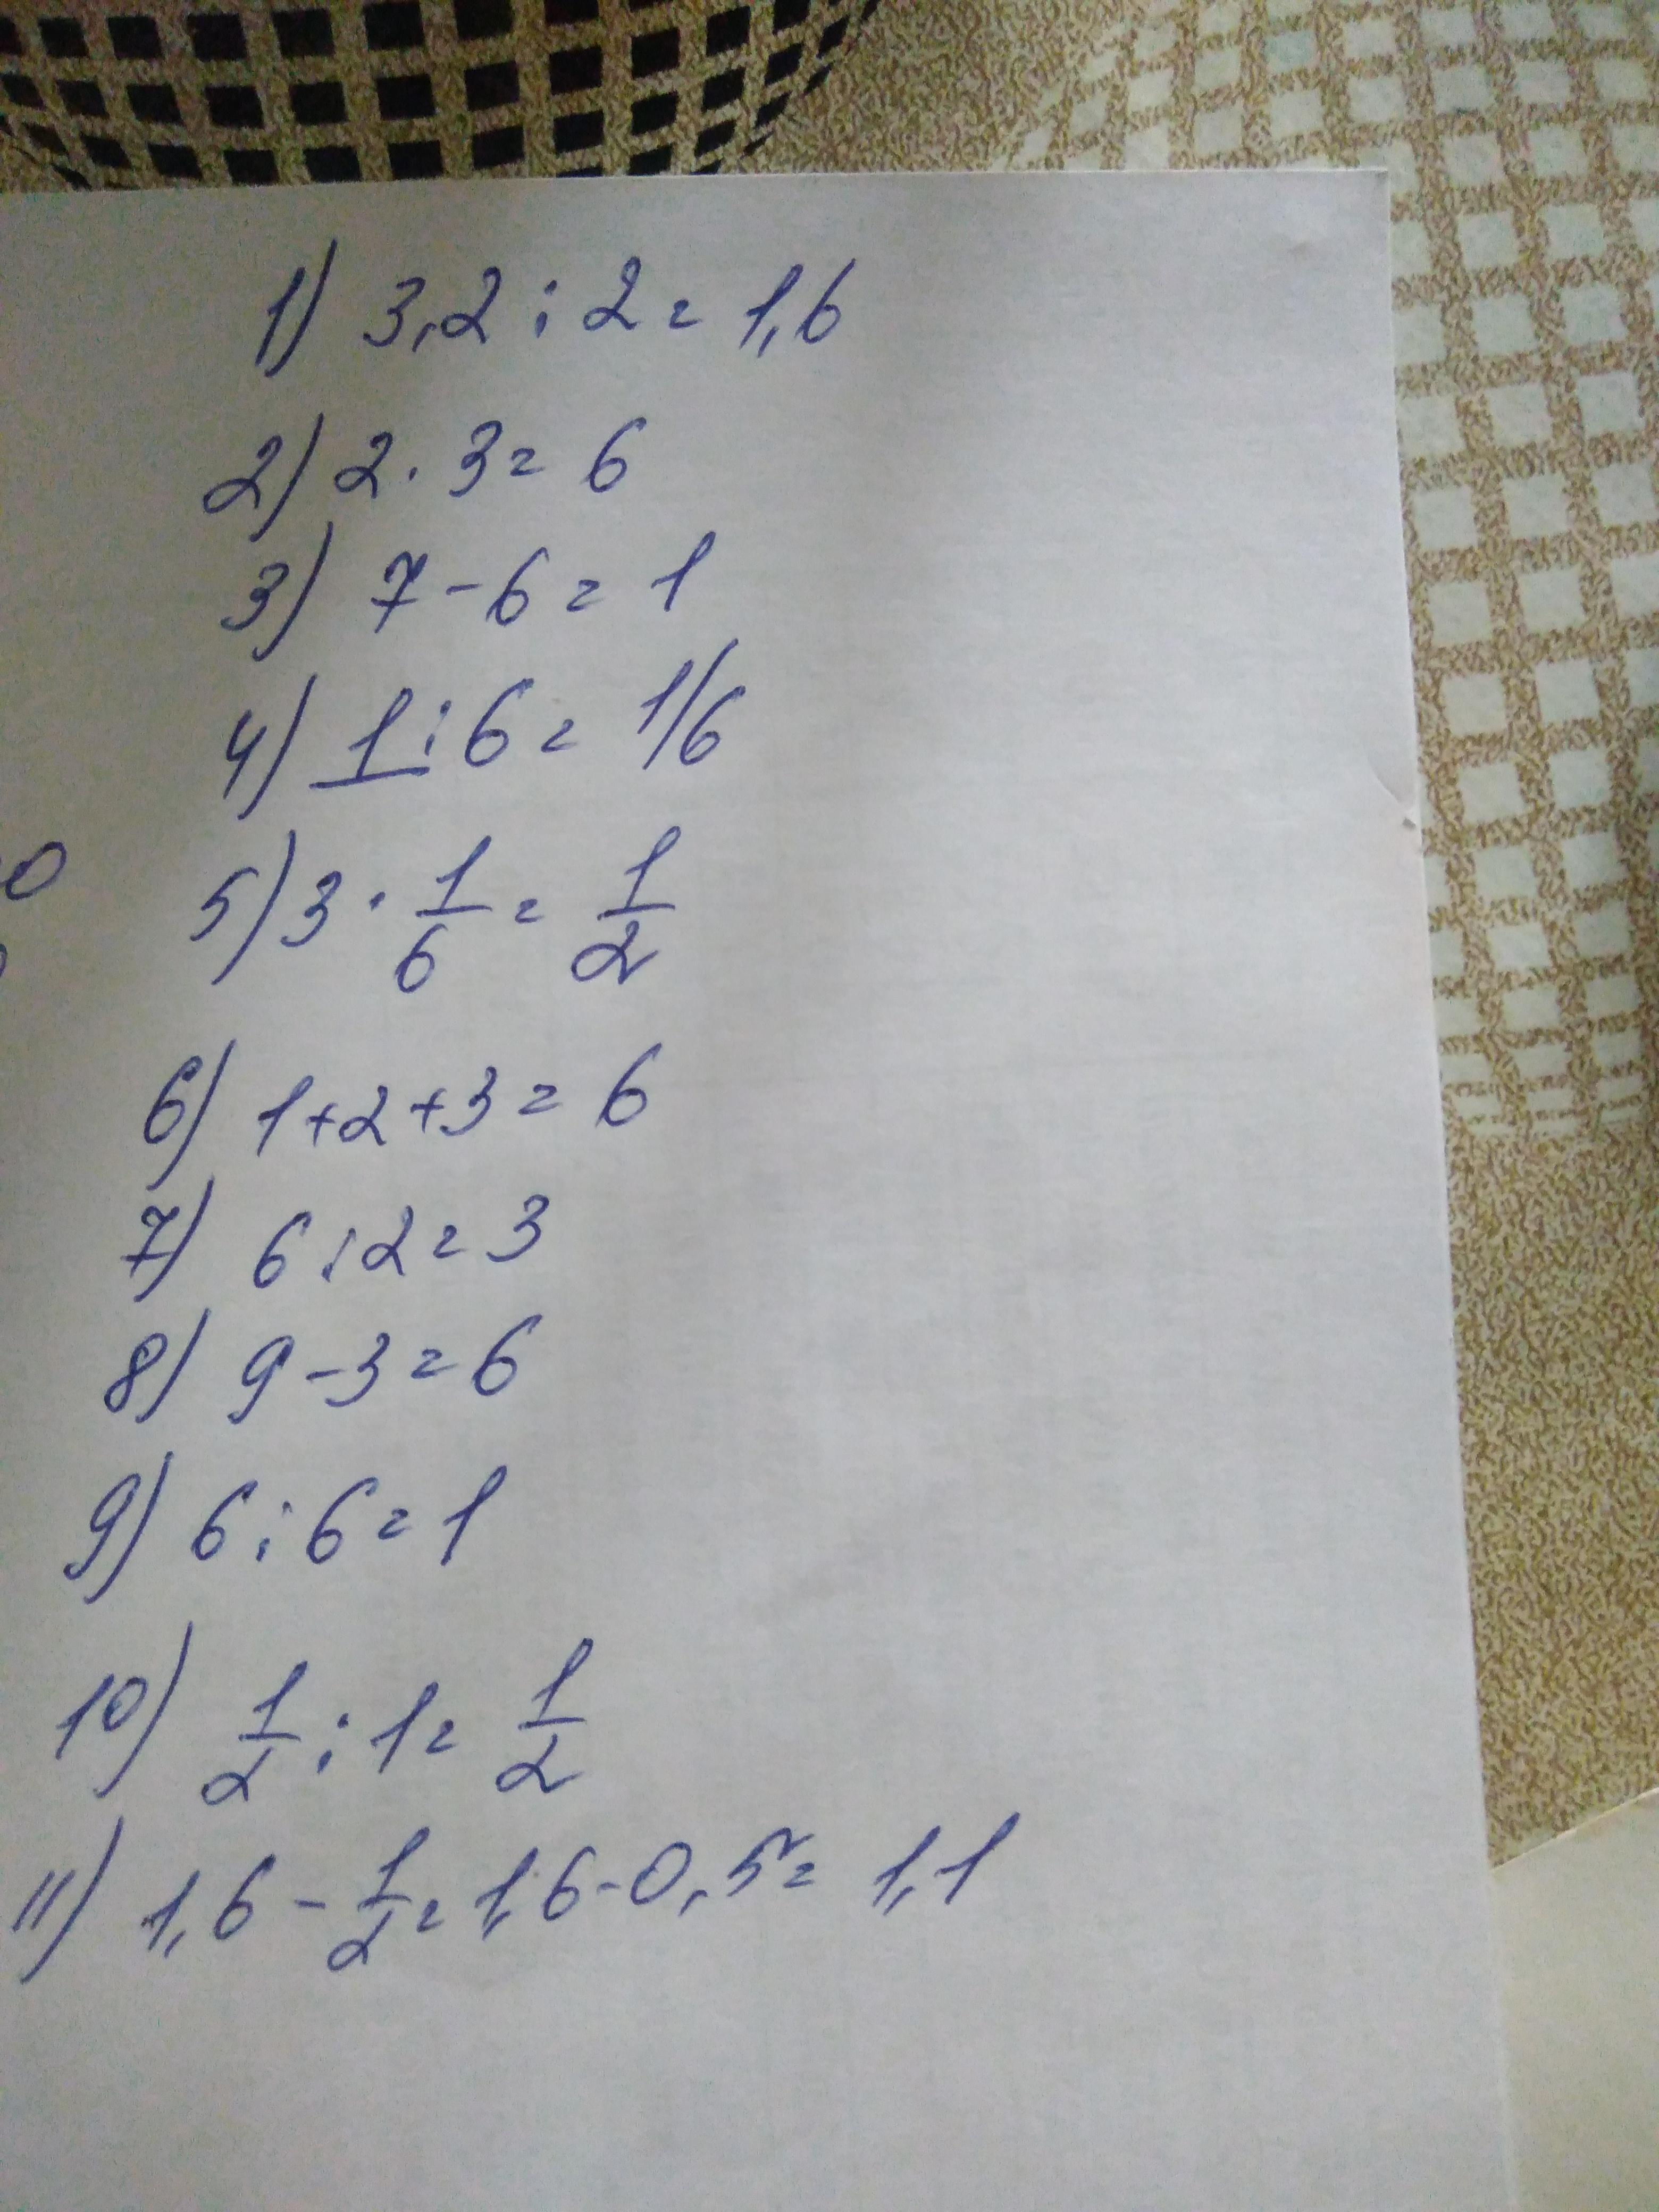 1) 3,2 : 2 = 1,6
2) 2 · 3 = 6
3) 7 - 6 = 1
4) 1 : 6 = 1/6
0
5) 3 · 1/6 = 1/2
6) 1 + 2 + 3 = 6
7) 6 : 2 = 3
8) 9 - 3 = 6
9) 6 : 6 = 1
10) 1/2 : 1 = 1/2
11) 1,6 - 1/2 = 1,6 - 0,5 = 1,1